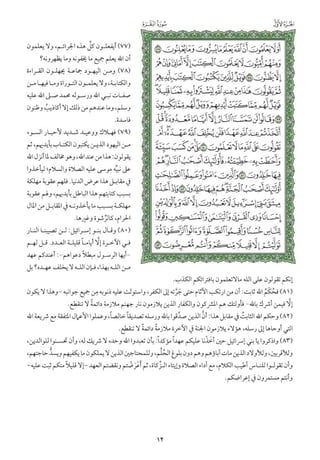 الجزء الأول
سورة البقرة
أَوَلَا يَعْلَمُونَ أَنَّ اللَّهَ يَعْلَمُ مَا يُسِرُّونَ وَمَا يُعْلِنُونَ ٧٧
وَمِنْهُمْ أُمِّيُّونَ لَا يَعْلَمُونَ الْكِتَابَ إِلَّا أَمَانِيَّ وَإِنْ هُمْ
إِلَّا يَظُنُّونَ ٧٨ فَوَيْلٌ لِلَّذِينَ يَكْتُبُونَ الْكِتَابَ بِأَيْدِيهِمْ
ثُمَّ يَقُولُونَ هَذَا مِنْ عِنْدِ اللَّهِ لِيَشْتَرُوا بِهِ ثَمَنًا
قَلِيلًا فَوَيْلٌ لَهُمْ مِمَّا كَتَبَتْ أَيْدِيهِمْ وَوَيْلٌ لَهُمْ مِمَّا
يَكْسِبُونَ ٧٩ وَقَالُوا لَنْ تَمَسَّنَا النَّارُ إِلَّا أَيَّامًا مَعْدُودَةً
قُلْ أَتَّخَذْتُمْ عِنْدَ اللَّهِ عَهْدًا فَلَنْ يُخْلِفَ اللَّهُ عَهْدَهُ أَمْ
تَقُولُونَ عَلَى اللَّهِ مَا لَا تَعْلَمُونَ ٨٠ بَلَى مَنْ كَسَبَ
سَيِّئَةً وَأَحَاطَتْ بِهِ خَطِيئَتُهُ فَأُولَئِكَ أَصْحَابُ
النَّارِ هُمْ فِيهَا خَالِدُونَ ٨١ وَالَّذِينَ آمَنُوا وَعَمِلُوا
الصَّالِحَاتِ أُولَئِكَ أَصْحَابُ الْجَنَّةِ هُمْ فِيهَا
خَالِدُونَ ٨٢ وَإِذْ أَخَذْنَا مِيثَاقَ بَنِي إِسْرَائِيلَ لَا تَعْبُدُونَ
إِلَّا اللَّهَ وَبِالْوَالِدَيْنِ إِحْسَانًا وَذِي الْقُرْبَى وَالْيَتَامَى
وَالْمَسَاكِينِ وَقُولُوا لِلنَّاسِ حُسْنًا وَأَقِيمُوا الصَّلَاةَ
وَآتُوا الزَّكَاةَ ثُمَّ تَوَلَّيْتُمْ إِلَّا قَلِيلًا مِنْكُمْ وَأَنْتُمْ مُعْرِضُونَ ٨٣
(٧٧) أيفعلون كلَّ هذه الجرائم، ولا يعلمون
أن الله يعلم جميع ما يخفونه وما يظهرونه؟
(٧٨) ومن اليهود جماعة يجهلون القراءة
والكتابة، ولا يعلمون التوراة وما فيها من
صفات نبي الله ورسوله محمد صلى الله عليه
وسلم، وما عندهم من ذلك إلا أكاذيبُ وظنون
فاسدة.
(٧٩) فهلاك ووعيد شديد لأحبار السوء
من اليهود الذين يكتبون الكتاب بأيديهم، ثم
يقولون: هذا من عند الله، وهو مخالف لما أنزل الله
على نبيِّه موسى عليه الصلاة والسلام؛ ليأخذوا
في مقابل هذا عرض الدنيا. فلهم عقوبة مهلكة
بسبب كتابتهم هذا الباطل بأيديهم، ولهم عقوبة
مهلكة بسبب ما يأخذونه في المقابل من المال
الحرام، كالرِّشوة وغيرها.
(٨٠) وقال بنو إسرائيل: لن تصيبنا النار
في الآخرة إلا أياماً قليلة العدد. قل لهم
-أيها الرسول مبطلاً دعواهم-: أعندكم عهد
من الله بهذا، فإن الله لا يخلف عهده؟ بل
إنكم تقولون على الله ما لا تعلمون بافترائكم الكذب.
(٨١) فحُكْمُ الله ثابت: أن من ارتكب الآثام حتى جَرَّته إلى الكفر، واستولت عليه ذنوبه مِن جميع جوانبه -وهذا لا يكون
إلا فيمن أشرك بالله- فأولئك هم المشركون والكفار الذين يلازمون نار جهنم ملازمة دائمة لا تنقطع.
(٨٢) وحكم الله الثابتُ في مقابل هذا: أنَّ الذين صدَّقوا بالله ورسله تصديقاً خالصاً، وعملوا الأعمال المتفقة مع شريعة الله
التي أوحاها إلى رسله، هؤلاء يلازمون الجنة في الآخرة ملازمةً دائمةً لا تنقطع.
(٨٣) واذكروا يا بني إسرائيل حين أخَذْنا عليكم عهداً مؤكداً: بأن تعبدوا الله وحده لا شريك له، وأن تحسنوا للوالدين،
وللأقربين، وللأولاد الذين مات آباؤهم وهم دون بلوغ الحُلُم، وللمحتاجين الذين لا يملكون ما يكفيهم ويسدُّ حاجتهم،
وأن تقولوا للناس أطيب الكلام، مع أداء الصلاة وإيتاء الزكاة، ثم أَعْرَضْتم ونقضتم العهد -إلا قليلاً منكم ثبت عليه-
وأنتم مستمرون في إعراضكم.
١٢